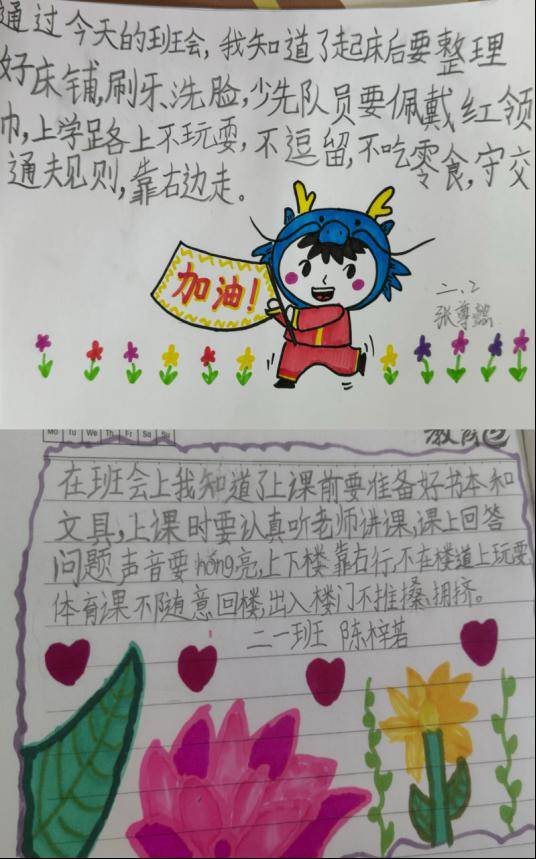 通过今天的班会,我知道了起床后要整理
好床铺,刷牙、洗脸,少先队员要佩戴红领
巾,上学路上不玩耍,不逗留,不吃零食,守交
通夫见则,靠右边走。
加油!
二.2
张尊
Mo Tu We Th Fr Sa Su
在班会上我知道了上课前要准备好书本和
文具,上课时要认真听老师讲课,课上回答
问题声音要hóng亮,上下楼靠右行,不在楼道上玩耍
体育课不随意回楼,出入楼门不推搡、拥挤。
二一班 陈梓若